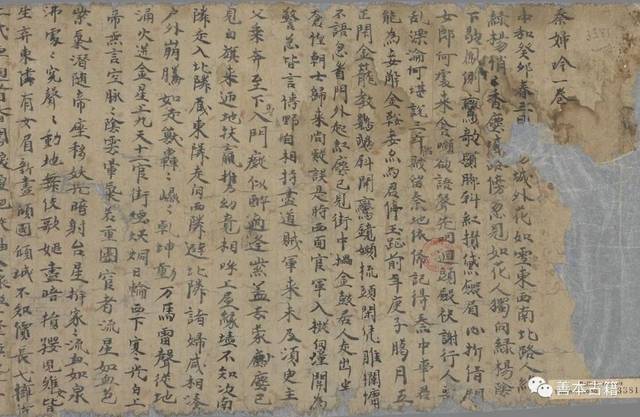 秦婦吟一卷
中和癸卯春三月 城外花如雪東西南北路人
綠楊悄悄香塵滅路傍忽見如花人獨向綠楊陰
下歇鳳側鸞欹鬢脚斜紅攢黛斂眉心折借問
女郎何處來含嚬欲語聲先咽迴頭斂袂謝行人喪
亂漂淪何堪說三年陷賊留秦地依俙記得秦中事君
能為妾解金鞍妾亦為君停玉趾前年庚子臘月五
正閉金籠教鸚鵡斜開鸞鏡懶梳頭閑凭雕欄慵
不語忽看門外起紅塵已見街中擂金鼓居人走出半
蒼惶朝士歸來尚疑誤是時西面官軍入擬向潼關為
警急皆言博野自相持盡道賊軍來未及須臾主
父乘奔至下入門癡似醉適逢紫蓋去蒙塵已
見白旗來迊地扶羸攜幼競相呼上屋緣墻不知次南
隣走入北隣藏東隣走向西隣避北隣諸婦咸相湊
戶外崩騰如走獸轟轟崐崐乾坤動万馬雷聲從地
涌火迸金星上九天十二官街煙烘烔日輪西下寒光白上
帝無言空脉脉陰雲暈氣若重圍宦者流星如血色
紫氣潛隨帝座移妖光暗射台星拆家家流血如泉
沸處處冤聲聲動地舞伎歌姬盡暗捐嬰兒稚女皆
生弃東隣有女眉新畫傾國傾城不知價長戈擁得
善本古籍